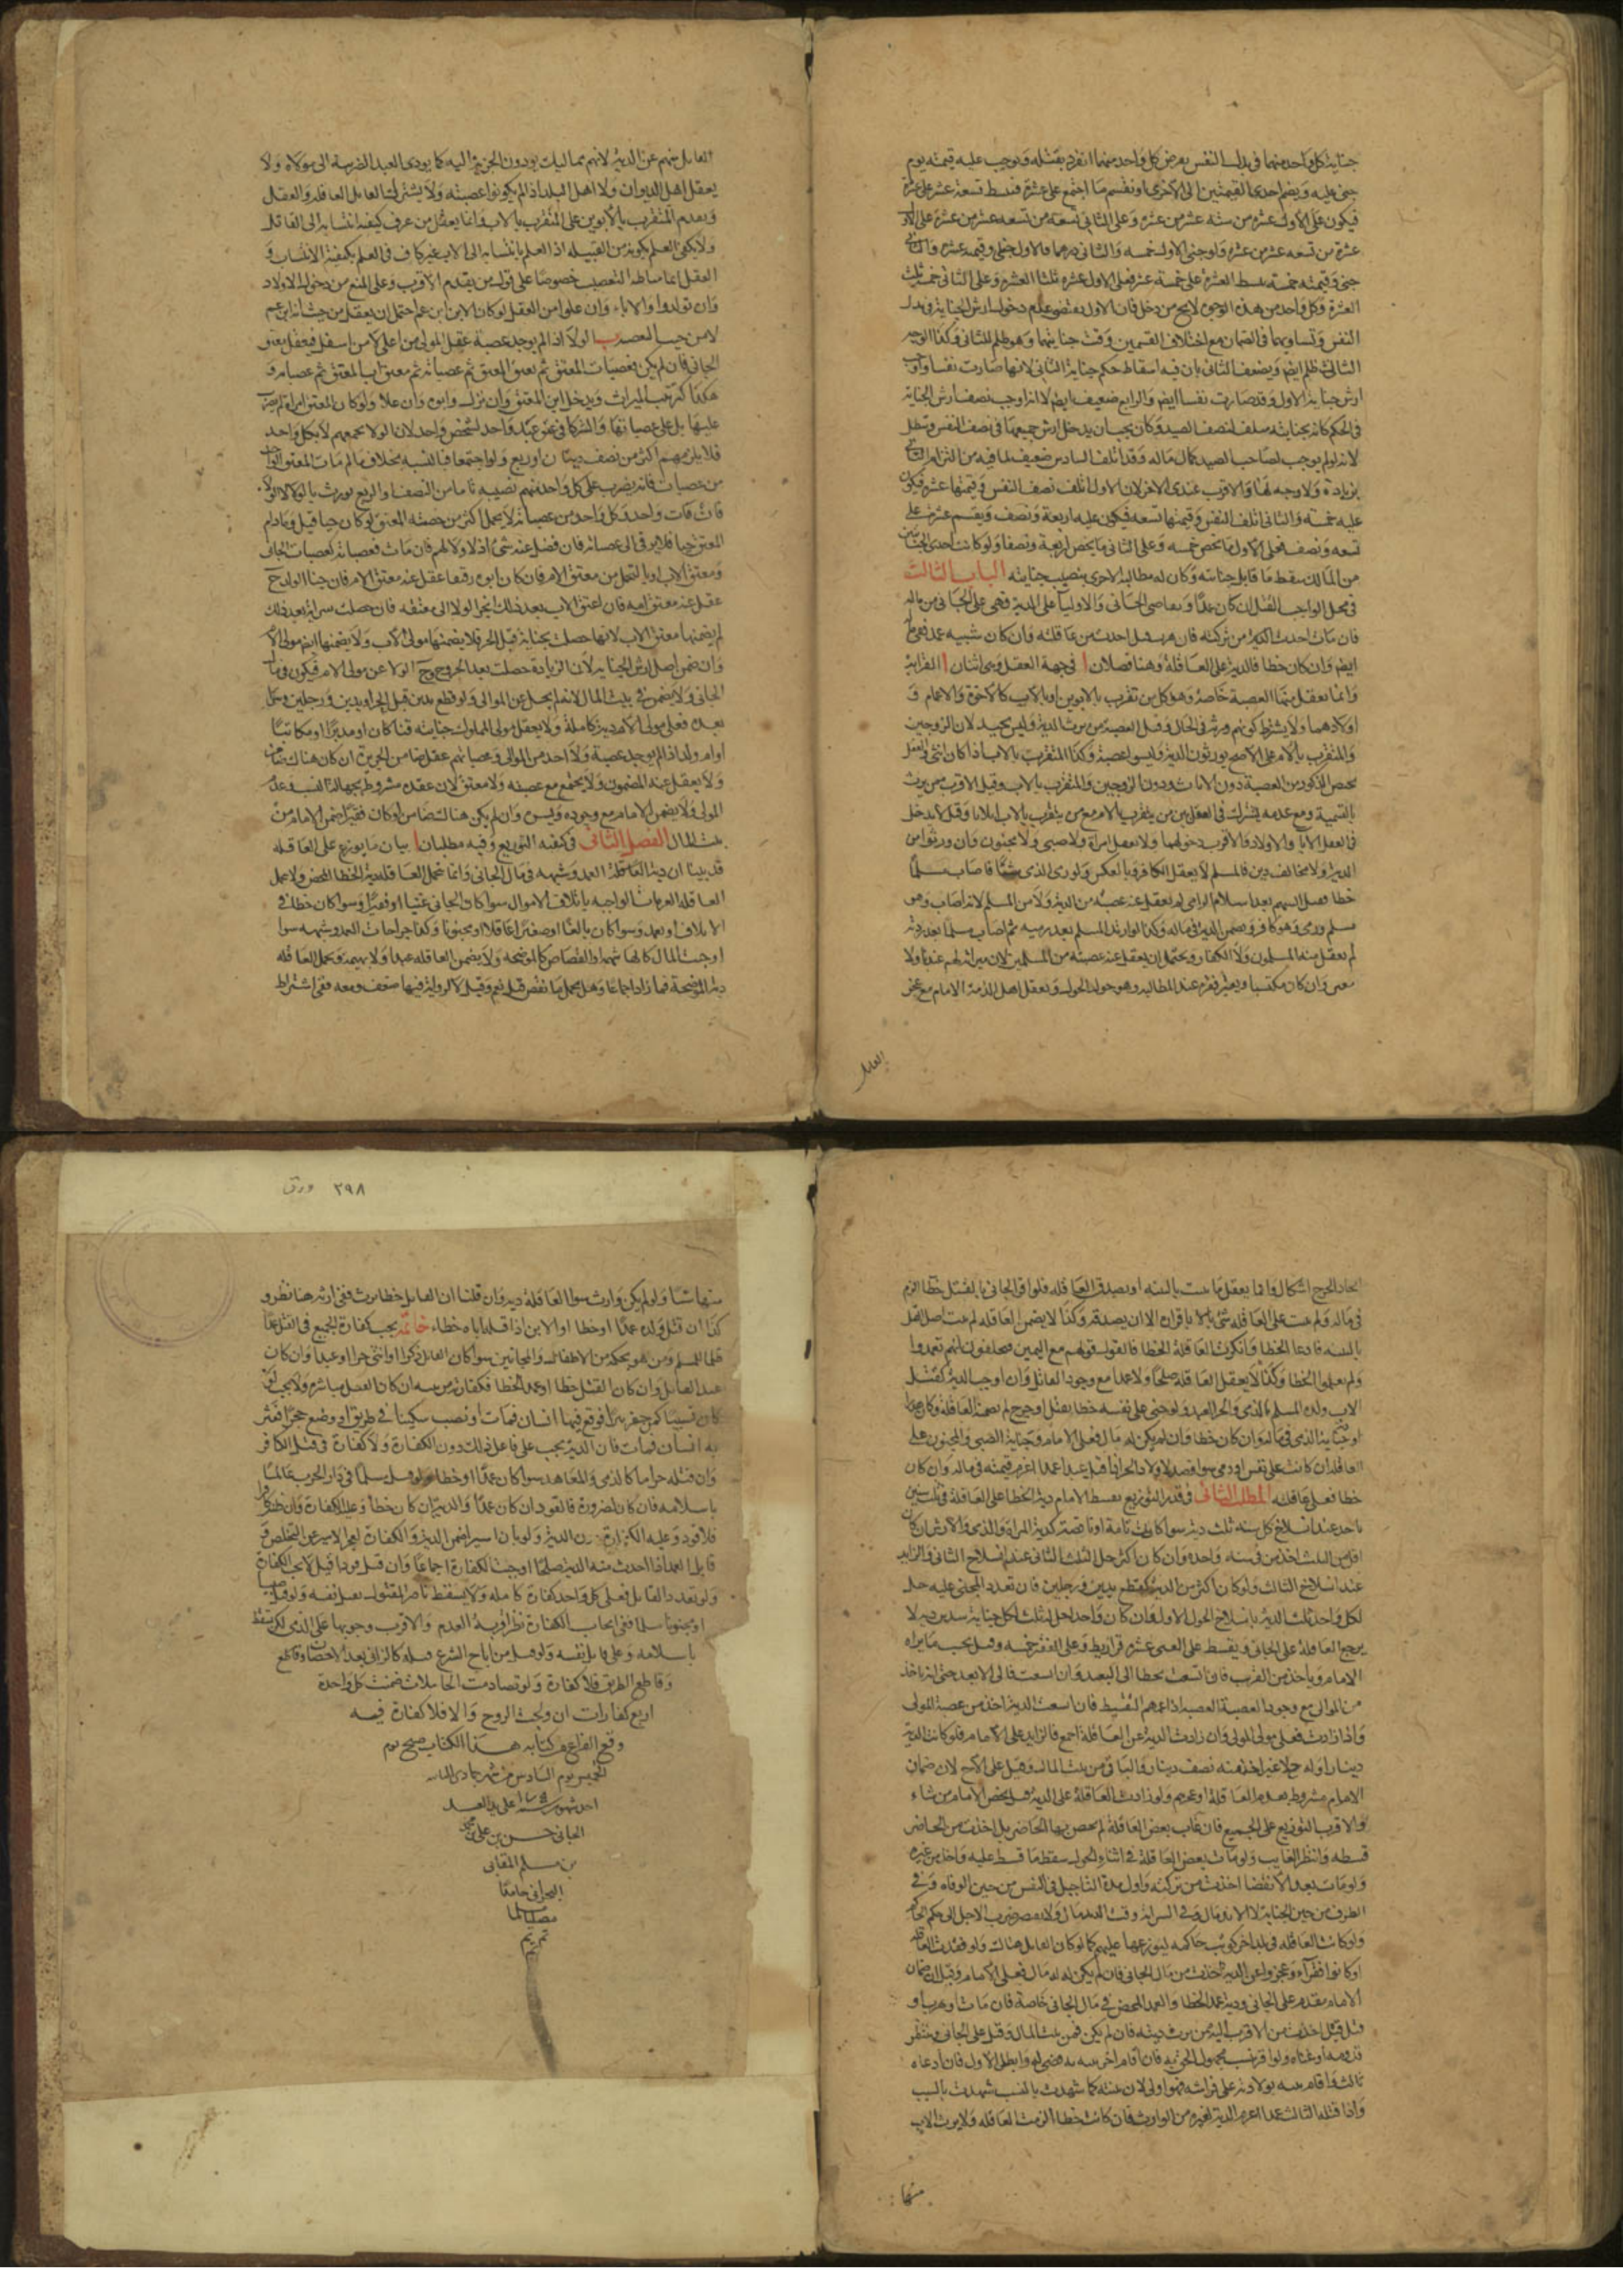 جناية كل واحد منهما في بدل النفس يفرض كل واحد منهما انفرد بقتله ويوجب عليه قيمته يوم
جنى عليه ويضم احدى القيمتين الى الاخرى ونقسم ما اجتمع على عشرة فنبسط تسعة عشر على عشرة
فيكون على الاول عشرة من تسعة عشر من عشرة وعلى الثاني تسعة من تسعة عشر من عشرة
جنى وقيمته خمسة بسط العشرة على خمسة عشر فعلى الاول عشرة ثلثا العشرة وعلى الثاني خمسة ثلث
العشرة وكل واحد من هذه الوجوه لا يخ من دخل فان الاول يقتضي عدم دخول ارش الجناية في بدل
النفس وتساويهما في الضمان مع اختلاف القيمتين وقت جنايتهما وهو ظلم للثاني وكذا الوجه
الثالث ظلم ايضا ويضعف الثاني بان فيه اسقاط حكم جناية الثاني لانها صارت نفسا واوجب
ارش جناية الاول وقد صارت نفسا ايضا والرابع ضعيف ايضا لانه اوجب نصف ارش الجناية
لانه لو لم يوجب لصاحب الصيد كمال ماله وقد اتلف السادس ضعيف لما فيه من التزام الثاني
بزيادة ولا وجه لها والاقرب عندي الاخر لان الاول اتلف نصف النفس وقيمتها عشرة فيكون
عليه خمسة والثاني اتلف النفس وقيمتها تسعة فيكون عليه اربعة ونصف ويقسم عشرة على
تسعة ونصف فعلى الاول ما يخص خمسة وعلى الثاني ما يخص اربعة ونصفا ولو كانت احدى الجنايتين
من المالك سقط ما قابل جنايته وكان له مطالبة الاخرى بنصيب جنايته الباب الثالث
في محل الواجب القتل ان كان عمدا وتعاصى الجاني والاوليا على الدية فهي على الجاني من ماله
فان مات اخذت الدية من تركته فان هرب هل اخذت من عاقلته وان كان شبيه عمد فهي
ايضا وان كان خطا فالدية على العاقلة وهنا فصلان ا في جهة العقل وهي اثنان ا القرابة
وانما يعقل منها العصبة خاصة وهو كل من تقرب بالابوين او بالاب كالاخوة والاعمام و
اولادهما ولا يشترط كونهم ورثة في الحال وقيل العصبة من يرث الدية وليس بجيد لان الزوجين
والمتقرب بالام على الاصح يورثون الدية وليسوا عصبة وكذا المتقرب بالاب اذا كان انثى والعقل
يخص الذكور من العصبة دون الاناث ودون الزوجين والمتقرب بالاب وقيل الاقرب ممن يرث
بالتسمية ومع عدمه يشترك في العقل بين من يتقرب بالام مع من يتقرب بالاب اثلاثا وقيل لا يدخل
في العقل الابا والاولاد والاقرب دخولهما ولا يعقل امراة ولا صبي ولا مجنون وان ورثوا من
الدية ولا مخالف دين فالمسلم لا يعقل الكافر وبالعكس ولو رمى الذمي فاصاب مسلما
خطا فصل السهم بعد اسلام الرامي لم يعقل عنه عصبته من الدية ولا من المسلم لانه اصاب وهو
مسلم ورمى وهو كافر ويضمن الدية في ماله وكذا لو ارتد المسلم بعد رميه ثم اصاب مسلما بعد ردته
لم يعقل عنه المسلمون ولا الكفار ويحتمل ان يعقل عنه عصبته من المسلمين لان ميراثه لهم عندنا ولا
معنى وان كان مكتسبا ويعتبر فقره عند المطالبة وهو حول الحول ويعقل اهل الذمة الامام مع عجز
القاتل
القاتل منهم عن الدية لانهم مماليك يودون الجزية اليه كما يودي العبد الضريبة الى مولاه ولا
يعقل اهل الديوان ولا اهل البلد اذا لم يكونوا عصبته ولا يشترك القاتل العاقلة والعقل
ويقدم المتقرب بالابوين على المتقرب بالاب وانما يعقل من عرف كيفية انتسابه الى القاتل
ولا يكفي العلم بكونه من القبيلة اذ العلم بانتسابه الى الاب غير كاف في العلم بكيفية الانتساب و
العقل انما مناطه التعصيب خصوصا على قول من يقدم الاقرب وعلى المنع من دخول الاولاد
وان نزلوا والاباء وان علوا من العقل لو كان الابن ابن عم احتمل ان يعقل من حيث انه ابن عم
لا من حيث العصبة ب الولا اذا لم يوجد عصبة عقل المولى من اعلى لا من اسفل فيعقل معتق
الجاني فان لم يكن فعصبات المعتق ثم معتق المعتق ثم عصباته ثم معتق اب المعتق ثم عصباته و
هكذا كترتيب الميراث ويدخل ابن المعتق وان نزل وابوه وان علا ولو كان المعتق امراة لم يضرب
عليها بل على عصباتها والشركا في عتق عبد واحد كشخص واحد لان الولا لجميعهم لا لكل واحد
فلا يلزمهم اكثر من نصف دينار او ربع ولو اجتمعا فبالنسبة بخلاف ما لو مات المعتق الواحد
من عصبات فانه يضرب على كل واحد منهم نصيبه تاما من النصف او الربع
فان مات واحد فكل واحد من عصباته لا يحمل اكثر من حصته المعتق لو كان حيا قيل وما دام
المعتق حيا فلا يرقى الى عصباته فان فضل عنه شيء اذ لا ولا لهم فان مات فعصباته كعصبات الجاني
ومعتق الاب اولى بالتحمل من معتق الام فان كان ابوه رقيقا عقل عنه معتق الام فان جنا الولد ح
عقل عنه معتق امه فان اعتق الاب بعد ذلك انجر الولا الى معتقه فان حصلت سراية بعد ذلك
لم يضمنها معتق الاب لانها حصلت بجناية قبل الجر فلا يضمنها مولى الاب ولا يضمنها ايضا مولى الام
وان ضمن اصل ارش الجناية لان الزيادة حصلت بعد الخروج ح الولا عن مولى الام فيكون في مال
الجاني ولا يضمن في بيت المال لانه لم يخل عن الموالي ولو قطع يدين قبل الجر او يدين ورجلين ومات
بعده فعلى مولى الام دية كاملة ولا يعقل مولى المملوك جنايته قنا كان او مدبرا او مكاتبا
او ام ولد اذا لم يوجد عصبة ولا احد من الموالي وعصباتهم عقل ضامن الجريرة ان كان هناك ضامن
ولا يعقل عنه المضمون ولا يجتمع مع عصبته ولا معتق لان عقده مشروط بجهالة النسب وعدم
المولى ولا يضمن الامام مع وجوده ويسره وان لم يكن هناك ضامن او كان فقيرا ضمن الامام من
بيت المال الفصل الثاني في كيفية التوزيع وفيه مطلبان ا بيان ما يوزع على العاقلة
قد بينا ان دية العاقلة العمد وشبهه في مال الجاني وانما تحمل العاقلة دية الخطا المحض ولا تحمل
العاقلة الغرامات الواجبة باتلاف الاموال سوا كان الجاني غنيا او فقيرا وسوا كان خطا في
الاتلاف او تعمد وسوا كان بالغا او صغيرا عاقلا او مجنونا وكذا جراحات العمد وشبهه سوا
اوجبت المال كالهاشمة او القصاص كالموضحة ولا يضمن العاقلة عبدا ولا بهيمة وتحمل العاقلة
دية الموضحة فما زاد اجماعا وهل يحمل ما نقص قيل نعم وقيل لا لرواية فيها ضعف ومعه ففي اشتراط
اتحاد الجرح اشكال وانما يعقل ما يثبت بالبينة او بصدق العاقلة فلو اقر الجاني بالقتل خطا لزم
في ماله ولم يثبت على العاقلة شي بالاباقراره الا ان يصدقه وكذا لا يضمن العاقلة لو ثبت اصل القتل
بالبينة فادعا الخطا وانكرت العاقلة الخطا فالقول قولهم مع اليمين فيحلفون انهم تعمدوا
ولم يعلموا الخطا وكذا لا يعقل العاقلة صلحا ولا عمدا مع وجود القاتل وان اوجب الدية كقتل
الاب ولده المسلم الذمي والحر العبد ولو جنى على نفسه خطا بقتل او جرح لم تضمنه العاقلة وكان هدرا
وجناية الذمي في ماله وان كان خطا فان لم يكن له مال فعلى الامام وجناية الصبي والمجنون على
العاقلة ان كانت على نفس ادمي سوا قصد اولا ولا الحر اذا قتل عبدا عمدا اغرم قيمته في ماله وان كان
خطا فعلى عاقلته المطلب الثاني في قدر التوزيع يقسط الامام دية الخطا على العاقلة في ثلث سنين
ياخذ عند انسلاخ كل سنة ثلث دية سوا كانت تامة او ناقصة كدية المراة والذمي والارش ان كان
اقل من الثلث اخذ من في سنة واحدة وان كان اكثر حل الثلث الثاني عند انسلاخ الثاني والزايد
عند انسلاخ الثالث ولو كان اكثر من الدية كقطع يدين ورجلين فان تعدد المجني عليه حل
لكل واحد ثلث الدية بانسلاخ الحول الاول وان كان واحدا حل له ثلث لكل جناية سدس دية لا
يرجع العاقلة على الجاني ويقسط على الغني عشرة قراريط وعلى الفقير خمسة وقيل بحسب ما يراه
الامام وياخذ من القرب فان اتسعت تخطا الى البعيد وان اتسعت فالى الابعد حتى انه ياخذ
من الموالي مع وجود العصبة اذا عمهم التقسيط فان اتسعت الدية اخذ من عصبة المولى
واذا زادت فعلى مولى المولى وان زادت الدية عن العاقلة اجمع فالزايد على الامام فلو كانت الدية
دينارا وله اخ لا غير اخذ منه نصف دينار والباقي من بيت المال وقيل على الاخ لان ضمان
الامام مشروط بعدم العاقلة او عجزهم ولو زادت العاقلة على الدية قيل يخص الامام من شاء
والاقرب التوزيع على الجميع فان غاب بعض العاقلة لم يخص بها الحاضر بل اخذت من الحاضر
قسطه وانتظر الغايب ولو مات بعض العاقلة في اثناء الحول سقط ما قسط عليه واخذ من غيره
ولو مات بعد الانقضا اخذت من تركته واول مدة التاجيل في النفس من حين الوفاه وفي
الطرف من حين الجناية لا الاندمال وفي السراية وقت الاندمال ولا يفتقر ضرب الاجل الى حكم الحاكم
ولو كانت العاقلة في بلد اخر كوتب حاكمه ليوزعها عليهم كما لو كان القاتل هناك ولو فقدت العاقلة
او كانوا فقراء وعجزوا عن الدية اخذت من مال الجاني فان لم يكن له مال فعلى الامام وقيل ان ضمان
الامام مقدم على الجاني ودية عمد الخطا والعمد المحض في مال الجاني خاصة فان مات او هرب او
قتل قيل اخذت من الاقرب اليه ممن يرث ديته فان لم يكن فمن بيت المال وقيل على الجاني وينتظر
قدومه او غناه ولو اقر بنسب مجهول الحق به فان اقام اخر بينة به قضي له وابطل الاول فان ادعاه
ثالث واقام بينة بولادته على فراشه فهو اولى لان بينته كما شهدت بالنسب شهدت بالسبب
واذا قتله الثالث عمدا اغرم الدية لغيره من الوارث فان كانت خطا الزمت العاقلة ولا يرث الاب
منها
٢٩٨ ورق
منها شيا ولو لم يكن وارث سوا العاقلة دية وان قلنا ان القاتل خطا يرث ففي ارثه هنا نظر و
كذا ان قتل ولده عمدا او خطا او الابن اذا قتل اباه خطاء خاتمة يجب كفارة الجميع في القتل عمدا
ظلما للمسلم ومن هو بحكمه من الاطفال والمجانين سوا كان القاتل ذكرا او انثى حرا او عبدا وان كان
عبد القاتل وان كان القتل خطا او عمد الخطا فكفارة مرتبة ان كان القتل مباشرة ولا يجب لو
كان تسبيبا كمن حفر بئرا فوقع فيها انسان فمات او نصب سكينا في طريق او وضع حجرا فعثر
به انسان فمات فان الدية يجب على فاعل ذلك دون الكفارة ولا كفارة في قتل الكافر
وان قتله حراما كالذمي والمعاهد سوا كان عمدا او خطا ولو قتل مسلما في دار الحرب عالما
باسلامه فان كان لضرورة فالقود ان كان عمدا والدية ان كان خطا وعليه الكفارة وان ظنه كافرا
فلا قود وعليه الكفارة دون الدية ولو بان اسيرا ضمن الدية والكفارة لعجز الاسير عن التخلص و
قابل العمد اذا اخذت منه الدية صلحا اوجبت الكفارة اجماعا وان قتل قودا قيل لا يجب الكفارة
ولو تعدد القاتل فعلى كل واحد كفارة كاملة ولا يسقط بامر المقتول بقتل نفسه ولو قتل صبيا
او مجنونا مسلما ففي ايجاب الكفارة نظر اقربه العدم والاقرب وجوبها على الذمي لكن يسقط
باسلامه وعلى قاتل نفسه ولو قتل من اباح الشرع قتله كالزاني بعد الاحصان وقاطع
وقاطع الطريق فلا كفارة ولو تصادمت الحاملات ضمنت كل واحدة
اربع كفارات ان ولجت الروح والا فلا كفارة فيه
وقع الفراغ من كتابة هذا الكتاب صبح يوم
الخميس يوم السادس من شهر جمادى
احد شهور سنة على يد العبد
الجاني حسن بن علي بن محمد
بن مسلم المقابي
البحراني حامدا
مصليا مسلما
تم